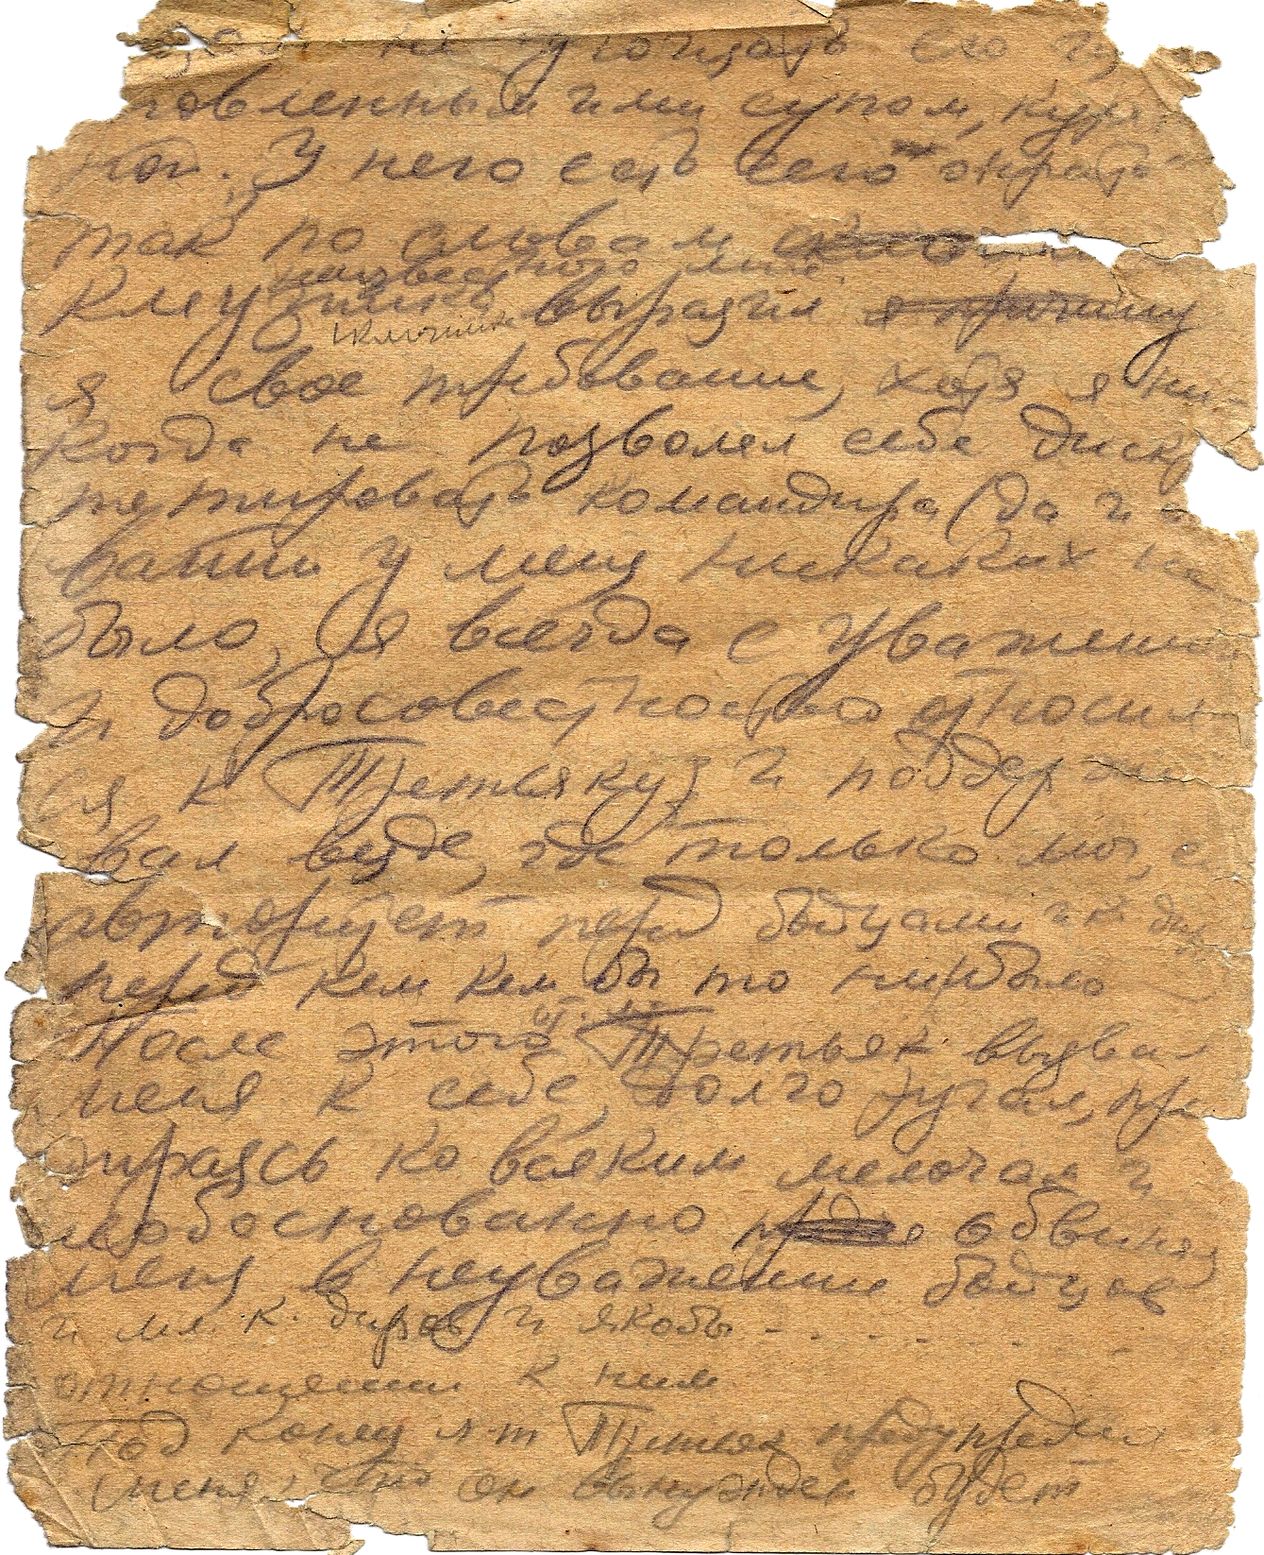 не угощать его
товленным ими супом, кур
той. У него есть всего
так по словам
неизвестного мне
клеузника выразил я причину
ключника
я свое требование, хотя я ни-
когда не позволял себе диск
тировать командира (да и
ваний у меня никаких не
было, я всегда с уважени
и добросовестностью относил
ся к Третьяку) и поддержи
вал везде, где только мог, е
авторитет перед бойцами и к-
перед кем кем бы то нибыло
После этого Третьяк вызвал
меня к себе, долго ругал, при
дираясь ко всяким мелочам и
необоснованно обвинял
меня в неуважении бойцов
и мл. к. диров и якобы - . . . . . .
отношении к ним
Под конец л-т Третьяк предупредил
меня, что он вынужден будет